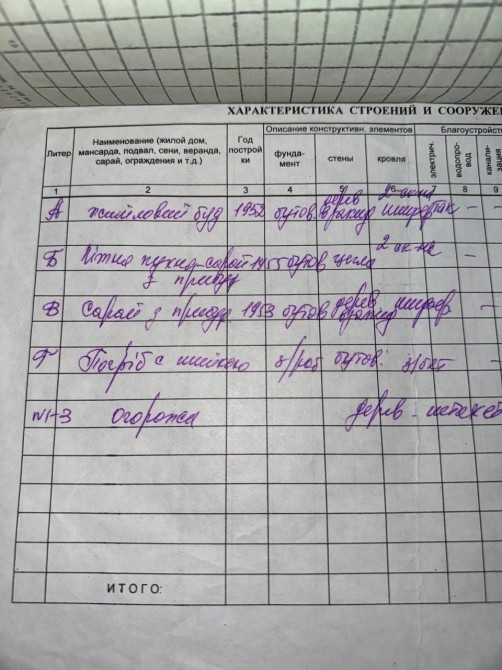 ХАРАКТЕРИСТИКА СТРОЕНИЙ И СООРУЖЕ
Литер Наименование (жилой дом, мансарда, подвал, сени, веранда, сарай, ограждения и т.д.) Год построй ки Описание конструктивн. элементов Благоустройств
фунда- мент стены кровля электрич. водопро- вод канали- зация
1 2 3 4 5 6 7 8 9
А жилловий буд 1952 бутов дерев 2 скат шифер так – –
Б Літня кухня-сарай 1955 бутов цегла 2 ск на –
з прибуд
В Сарай з прибуд 1953 бутов дерев шифер –
Г Погріб с шийкою з/роб бутов. з/бет –
N1-3 Огорожа дерев - штахет
ИТОГО: